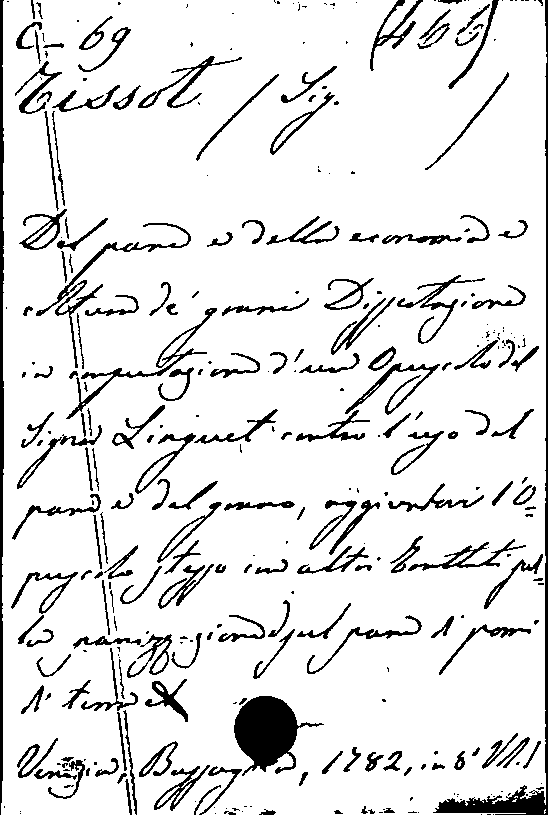 C- 69 (466)
Tissot / Sig. /
Del pane e della economia e
coltura de' grani Dissertazione
in confutazione d'un Opuscolo del
Signor Linguet contro l'uso del
pane e del grano, aggiuntovi l'O=
puscolo stesso con altri Trattati sul=
la panizzazione, sul pane di pomi
di terra
Venezia, Bassaglia, 1782, in 8°